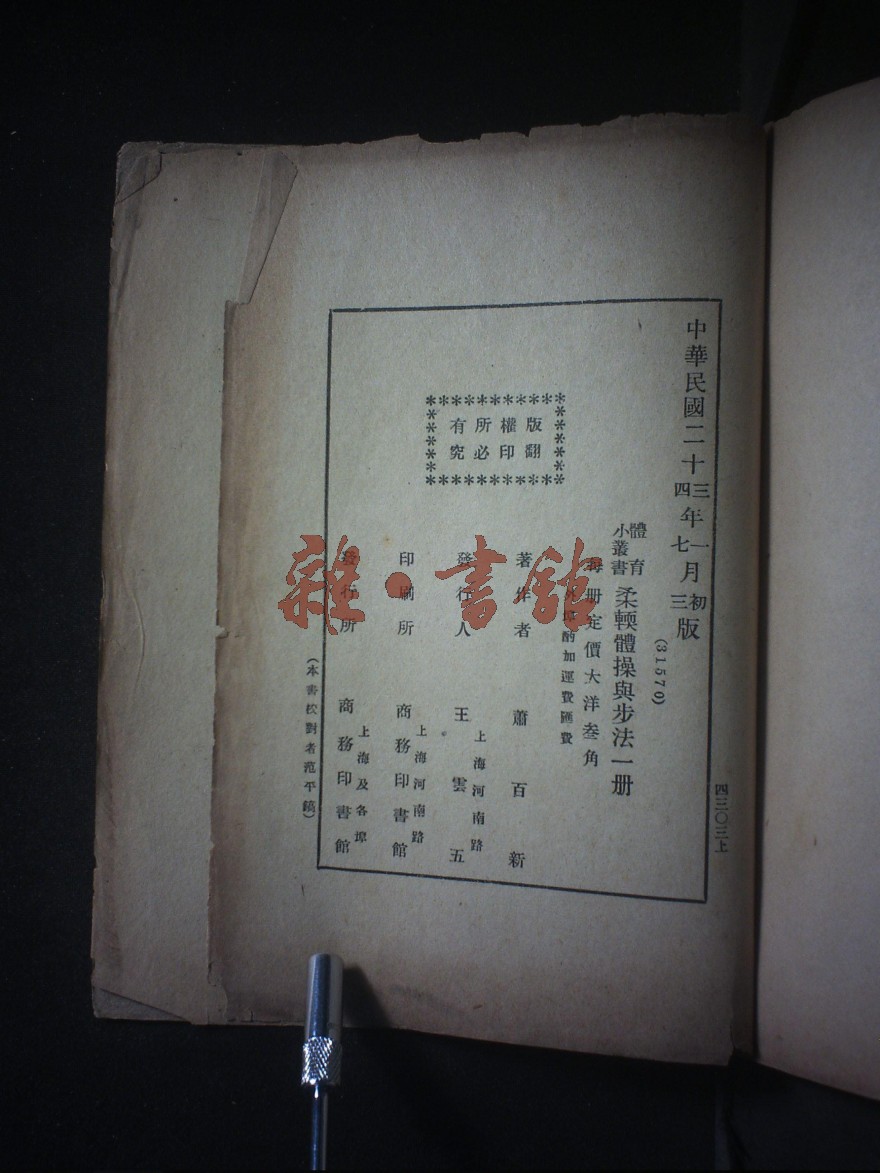 中華民國二十三年一月初版
四 七 三
四三〇三上
(31570)
體育小叢書 柔輭體操與步法一册
每册定價大洋叁角
外埠酌加運費匯費
版權所有
翻印必究
著作者 蕭百新
發行人 王雲五
上海河南路
印刷所 商務印書館
上海河南路
發行所 商務印書館
上海及各埠
(本書校對者范平鎬)
雜·書館